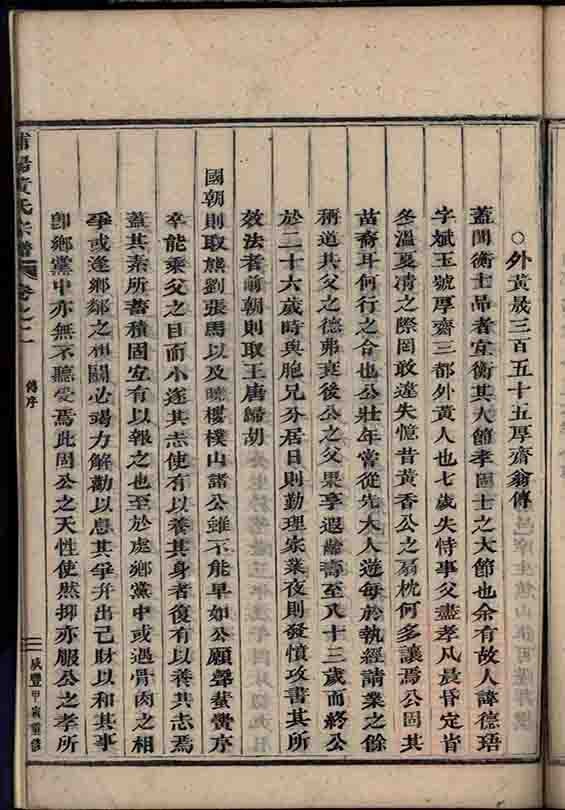 ○外黃晟三百五十五厚齋翁傳
蓋聞衡士品者宜衡其大節孝固士之大節也余有故人諱德珸
字斌玉號厚齋三都外黃人也七歲失恃事父盡孝凡晨昏定省
冬溫夏凊之際罔敢違失憶昔黃香公之扇枕何多讓焉公固其
苗裔耳何行之合也公壯年嘗從先大人遊每於執經請業之餘
稱道其父之德弗衰後公之父果享遐齡壽至八十三歲而終公
於二十六歲時與胞兄分居日則勤理家業夜則發憤攻書其所
效法者前朝則取王唐歸胡
國朝則取熊劉張馬以及曉樓樸山諸公雖不能早如公願聲蜚黌序
卒能乘父之目而小遂其志使有以養其身者復有以養其志焉
蓋其素所蓄積固宜有以報之也至於處鄉黨中或遇骨肉之相
爭或逢鄉鄰之相鬬必竭力解勸以息其爭并出己財以和其事
卽鄉黨中亦無不聽受焉此固公之天性使然抑亦服公之孝所
浦陽黃氏宗譜 卷之二 傳序 三 咸豐甲寅重修